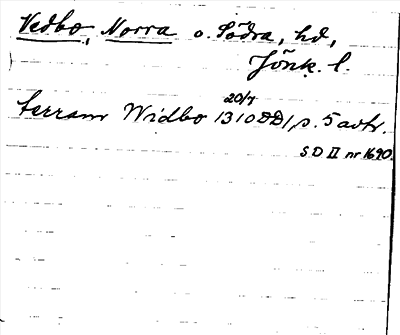 Vedbo, Norra o. Södra, hd,
Jönk. l.
terram Widbo 1310 20/7 DD1, s. 5 avtr.
SD II nr 1690.